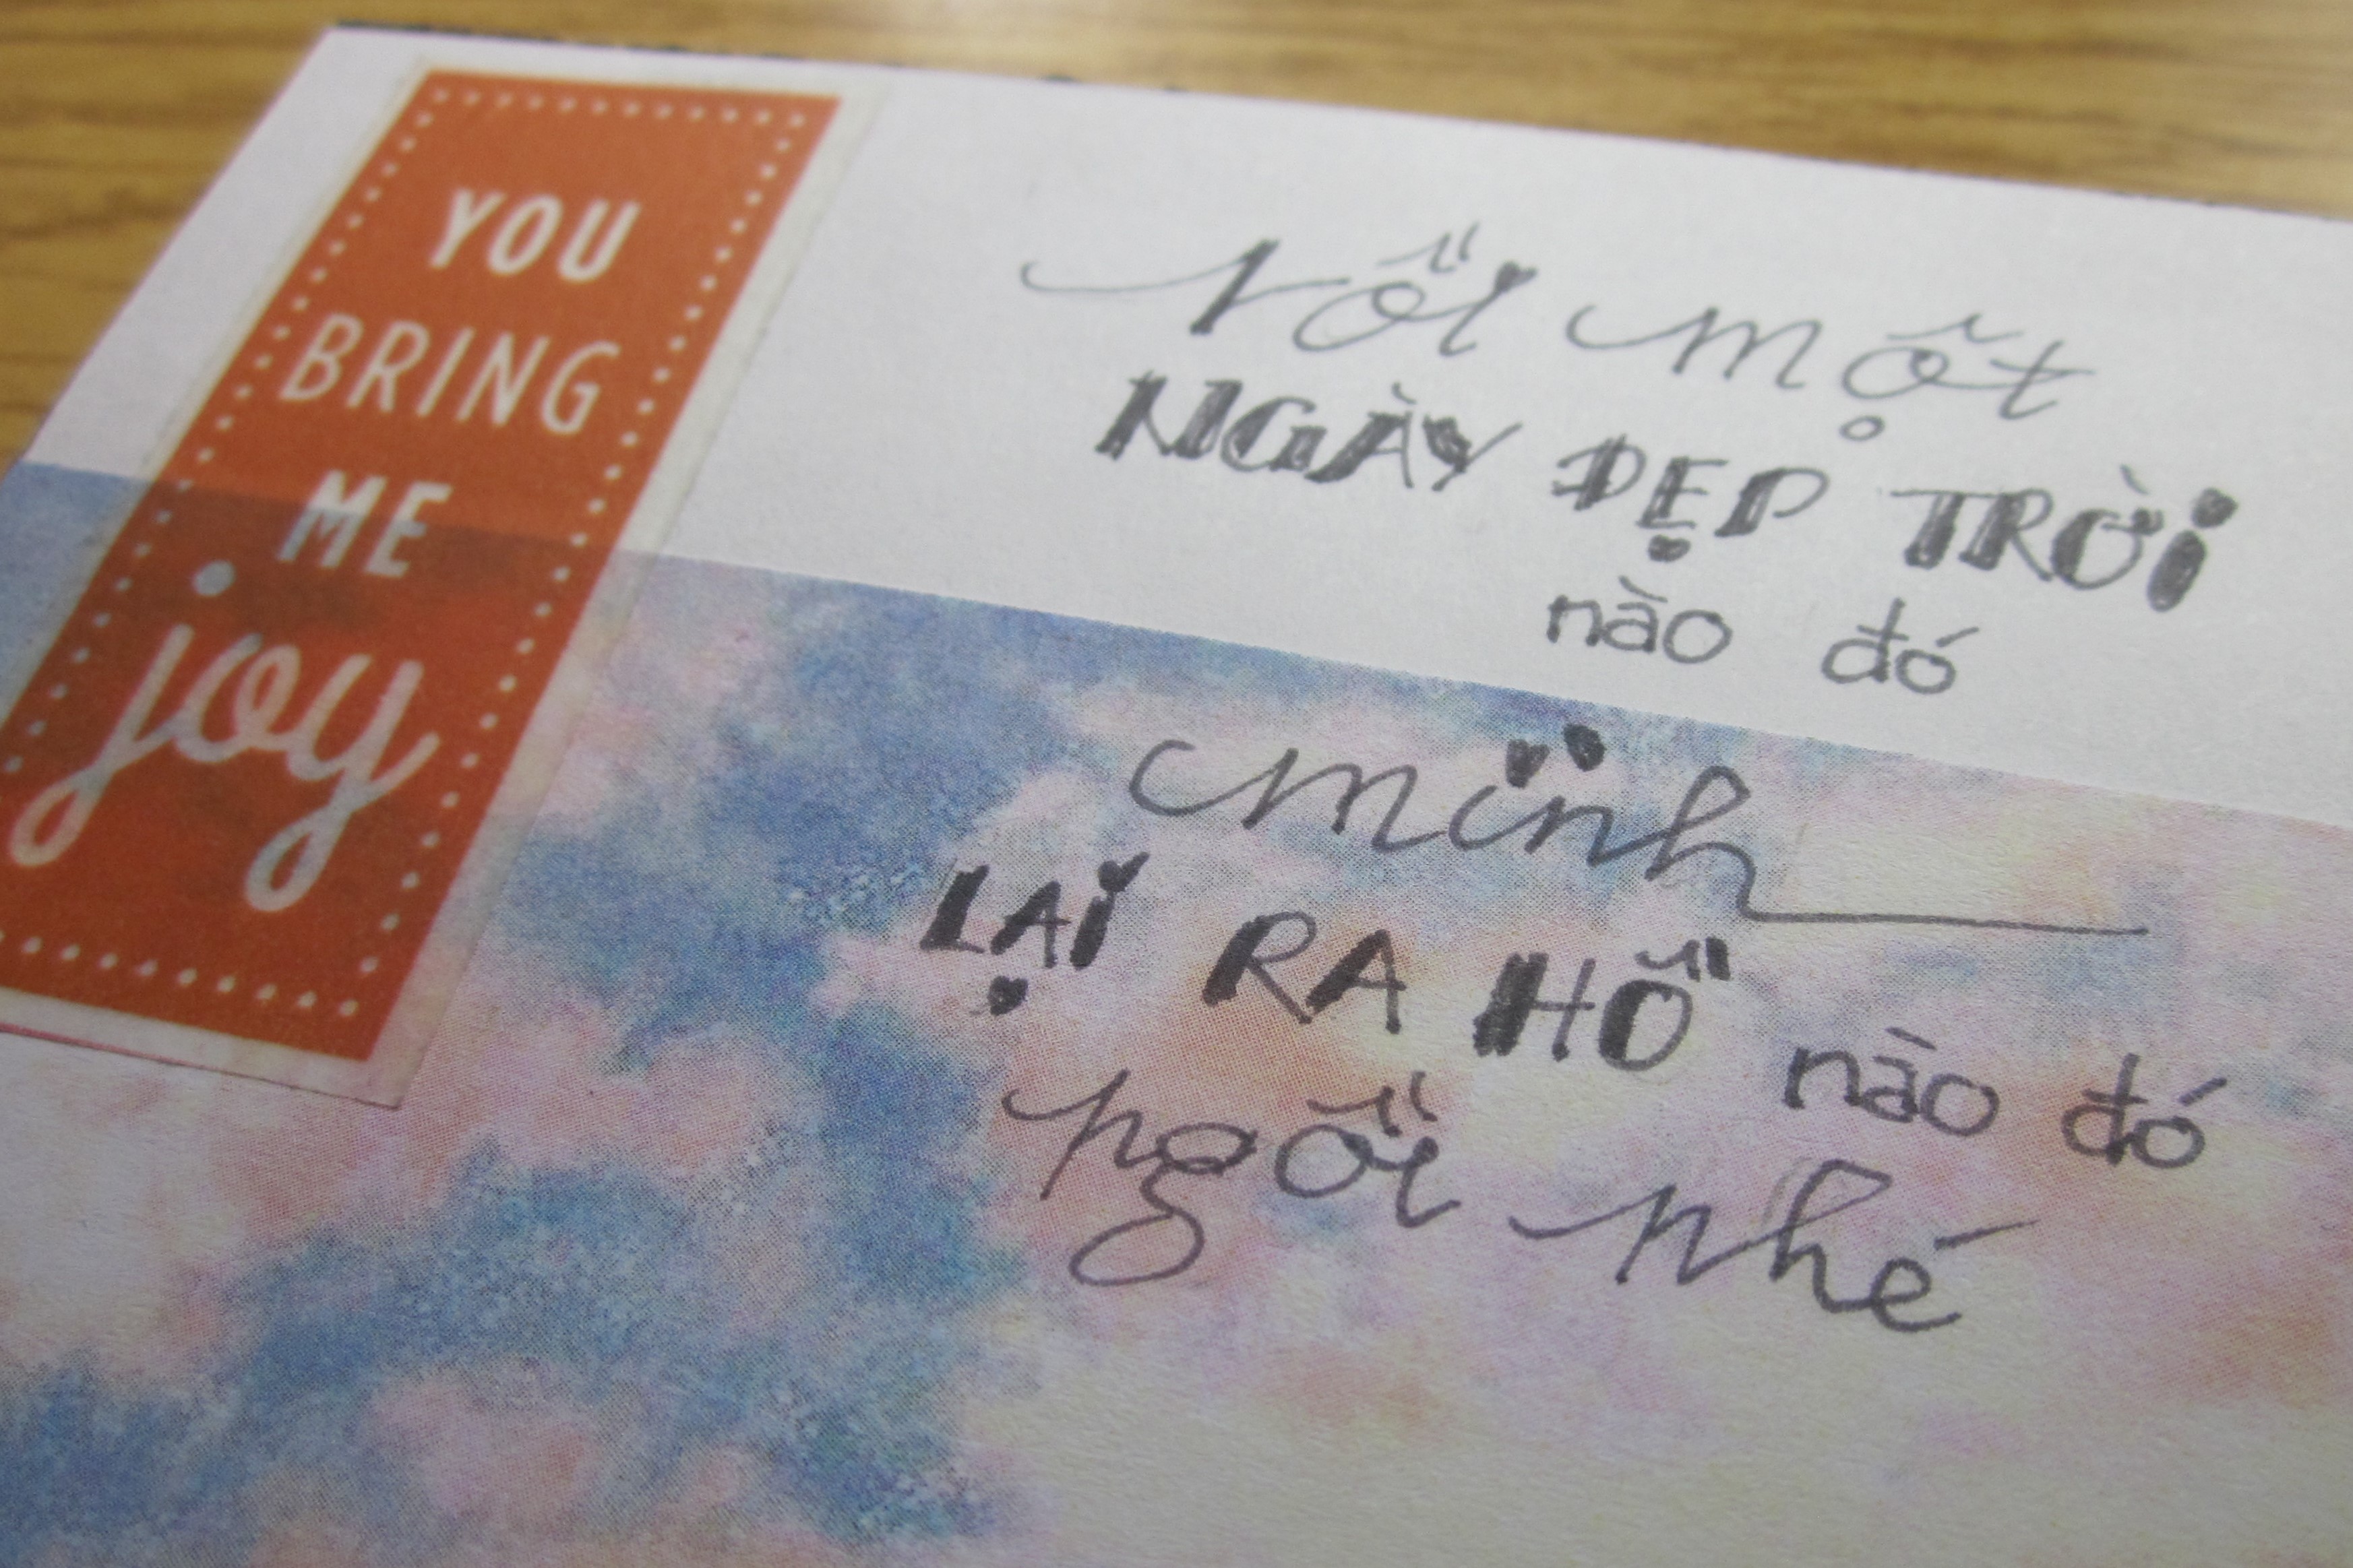 YOU
BRING
ME
joy
rồi một
NGÀY ĐẸP TRỜI
nào đó
mình
LẠI RA HỒ nào đó
ngồi nhé